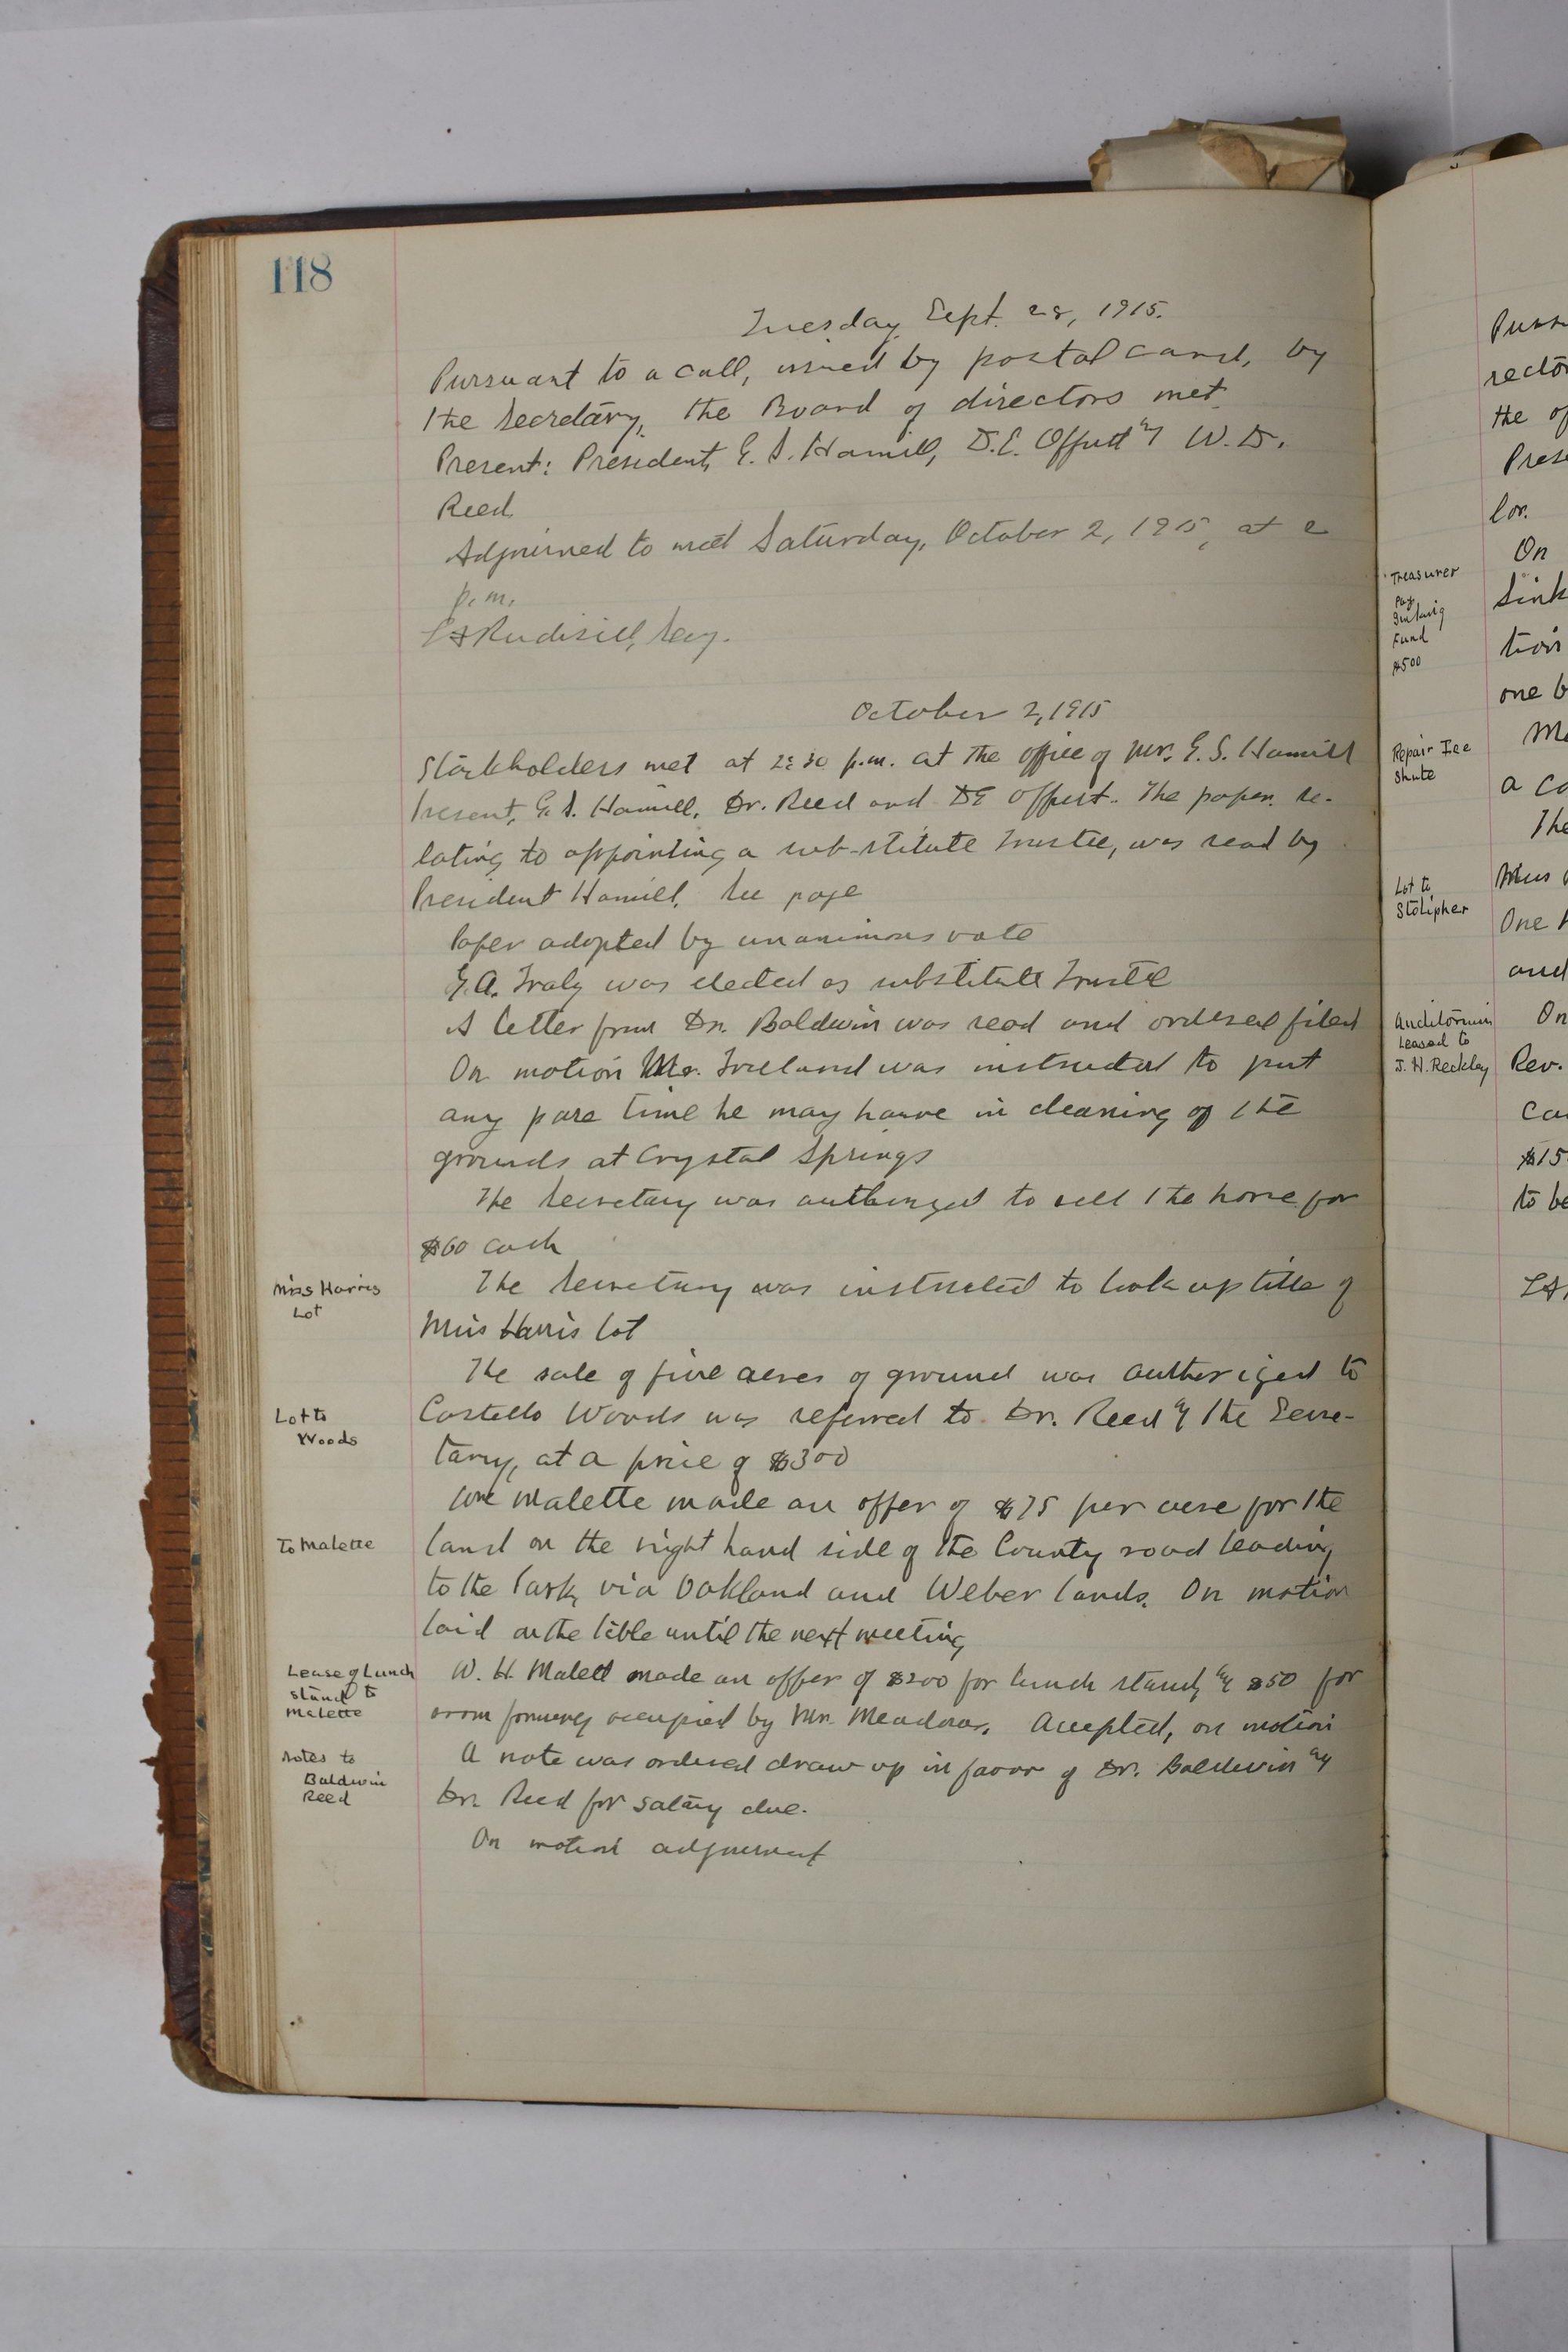 118
Tuesday Sept. 28, 1915.
Pursuant to a call, issued by postal card, by
the Secretary, the Board of directors met
Present: President, G. S. Hamill, D.E. Offutt & W. D.
Reed
Adjourned to meet Saturday, October 2, 1915, at 2
p.m.
LA Rudisill, Secy.
October 2, 1915
Stockholders met at 2:30 p.m. at the office of Mr. G. S. Hamill
Present, G. S. Hamill, Dr. Reed and DE Offutt. The paper re-
lating to appointing a sub-stitute trustee, was read by
President Hamill. See page
Paper adopted by unanimous vote
G.A. Fraly was elected as substitute Trustee
A letter from Dr. Baldwin was read and ordered filed
On motion Mr. Ireland was instructed to put
any pare time he may have in cleaning of the
grounds at Crystal Springs
The Secretary was authorized to sell the horse for
$60 cash
Miss Harris
Lot
The Secretary was instructed to look up title of
Miss Harris lot
The sale of five acres of ground was authorized to
Lot to
Woods
Costello Woods was referred to Dr. Reed & the Secre-
tary, at a price of $300
Wm Malette made an offer of $75 per acre for the
To Malette
land on the right hand side of the County road leading
to the Park, via Oakland and Weber lands. On motion
laid on the table until the next meeting
Lease of Lunch
stand to
Malette
W. H. Malett made an offer of $200 for lunch stand, & $50 for
room formerly occupied by Mr. Meadows. Accepted, on motion
Notes to
Baldwin
Reed
A note was ordered draw up in favor of Dr. Baldwin &
Dr. Reed for salary due.
On motion adjournment
Treasurer
Pay
Sinking
Fund
$500
Repair Ice
Shute
Lot to
Stolipher
Auditorium
Leased to
J. H. Reckley
rector
the of
Prese
lor.
On
Sink
tion
one b
a co
The
One
and
On
Rev.
$15.
to be